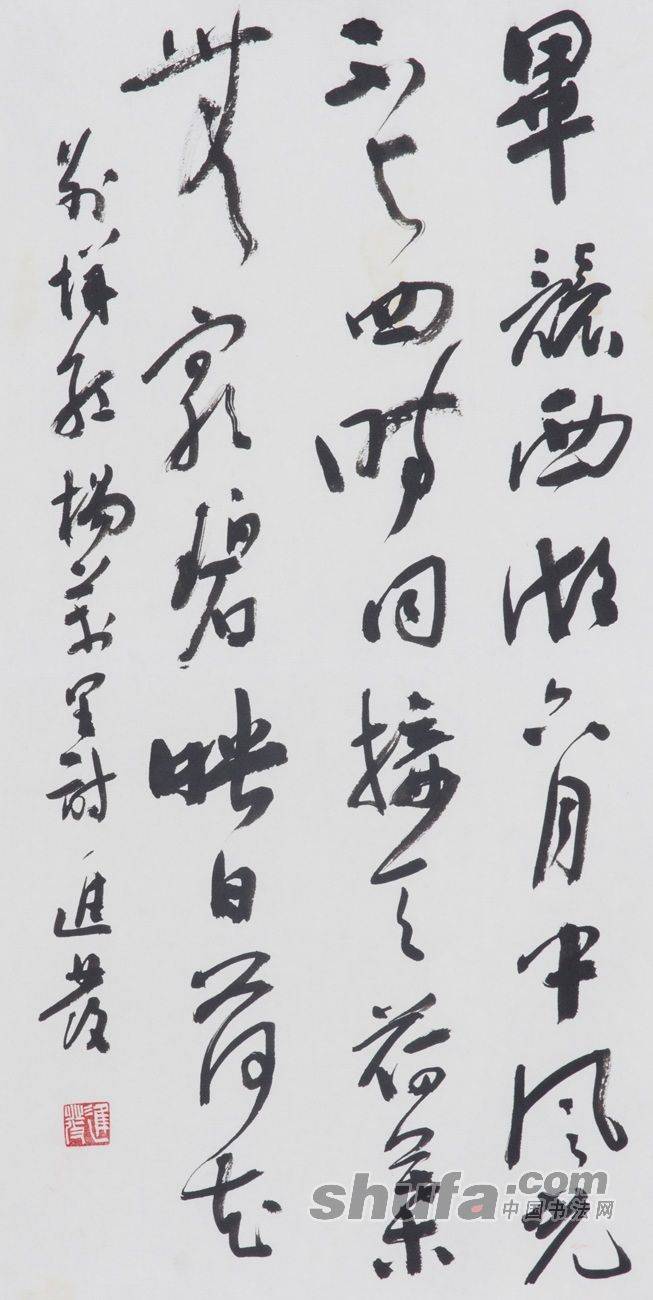 畢竟西湖六月中風光
不与四時同接天荷葉
無窮碧映日荷花
别樣紅楊萬里詩進發
進發
shufa.com
中国书法网